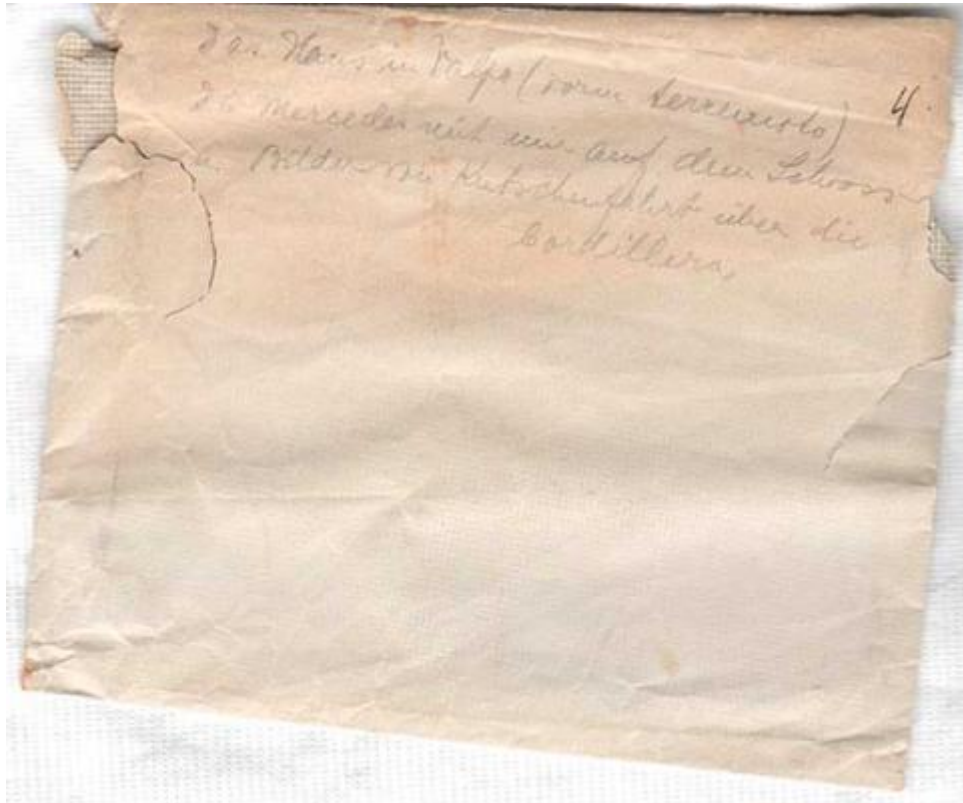 Das Haus in Valpo (vorm terremoto) 4.
Die Mercedes mit mir auf dem Schoss
u. Bilder von Kutschenfahrt über die
Cordillera,